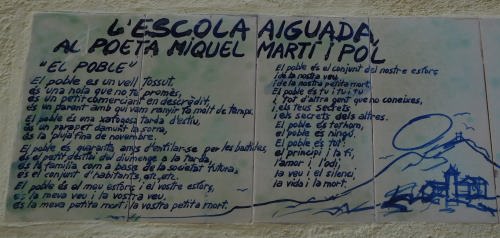 L'ESCOLA AIGUADA,
AL POETA MIQUEL MARTÍ I POL
"EL POBLE"
El poble és un vell tossut,
és una noia que no té promès,
és un petit comerciant en descrèdit,
és un parent amb qui vam renyir fa molt de temps.
El poble és una xafogosa tarda d'estiu,
és un paper damunt la sorra,
és la pluja fina de novembre.
El poble és quaranta anys d'enfilar-se per les bastides,
és el petit desfici del diumenge a la tarda,
és la família com a base de la societat futura,
és el conjunt d'habitants, etc., etc.
El poble és el meu esforç i el vostre esforç,
és la meva veu i la vostra veu,
és la meva petita mort i la vostra petita mort.
El poble és el conjunt del nostre esforç
i de la nostra veu
i de la nostra petita mort.
El poble és tu i tu i tu
i tot d'altra gent que no coneixes,
i els teus secrets
i els secrets dels altres.
El poble és tothom,
el poble és ningú.
El poble és tot:
el principi i la fi,
l'amor i l'odi,
la veu i el silenci,
la vida i la mort.